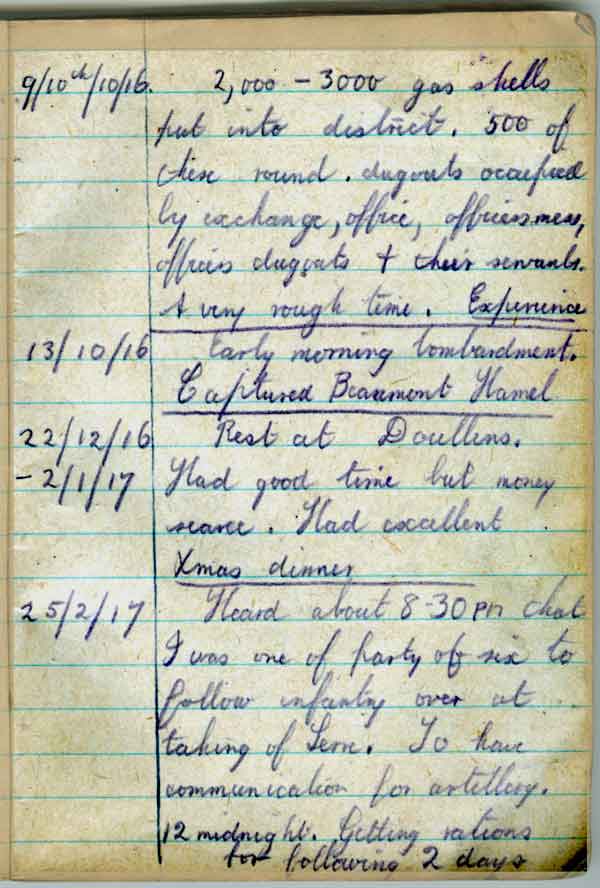 9/10th/10/16. 2,000 - 3000 gas shells
put into district. 500 of
these round. dugouts occupied
by exchange, office, officersmess,
officers dugouts + their servants.
A very rough time. Experience
13/10/16 Early morning bombardment.
Captured Beaumont Hamel
22/12/16 Rest at Doullens.
- 2/1/17 Had good time but money
scarce. Had excellent
Xmas dinner
25/2/17 Heard about 8-30 PM that
I was one of party of six to
follow infantry over at
taking of Serre. To have
communication for artillery.
12 midnight. Getting rations
for following 2 days